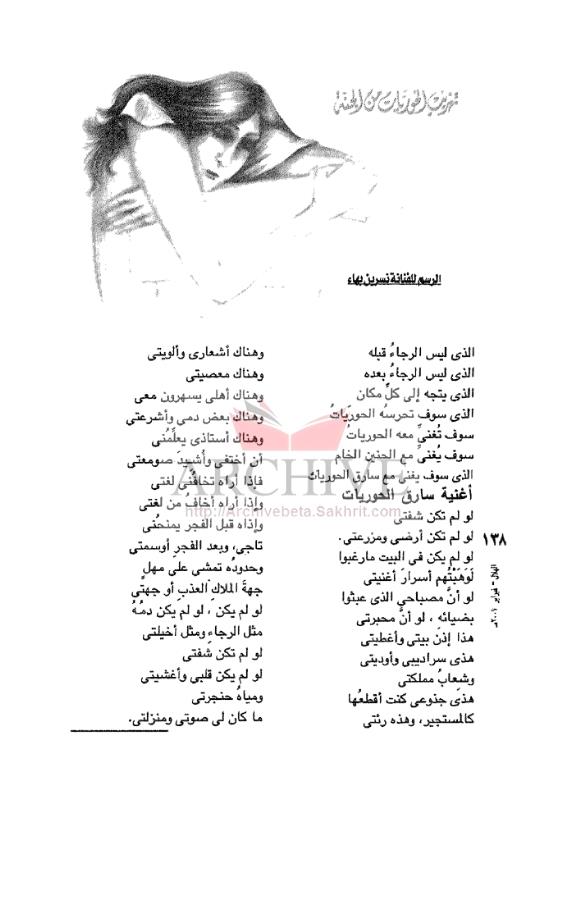 تهريب الحوريات من الجنة
الرسم للفنانة نسرين بهاء
الذى ليس الرجاءُ قبله
الذى ليس الرجاءُ بعده
الذى يتجه إلى كلِّ مكان
الذى سوف تحرسهُ الحوريَاتُ
سوف تُغنىِّ معه الحورياتُ
سوف يُغنىِّ مع الحنين الخام
الذى سوف يغنى مع سارق الحوريات
أغنية سارق الحوريات
لو لم تكن شفتى
لو لم تكن أرضى ومزرعتى.
لو لم يكن فى البيت مارغبوا
لَوَهَبْتُهم أسرارَ أغنيتى
لو أنَّ مصباحى الذى عبثوا
بضيائهِ ، لو أنَّ محبرتى
هذا إذن بيتى وأغطيتى
هذى سراديبى وأوديتى
وشعابُ مملكتى
هذى جذوعى كنت أقطعُها
كالمستجير، وهذه رئتى
وهناك أشعارى وألويتى
وهناك معصيتى
وهناك أهلى يسهرون معى
وهناك بعض دمى وأشرعتى
وهناك أستاذى يعلِّمُنى
أن أختفى وأُشيدَ صومعتى
فإذا أراه تخافُنى لغتى
وإذا أراه أخافُ من لغتى
وإذاه قبل الفجر يمنحُنى
تاجى، وبعد الفجرِ أوسمتى
وحدودُه تمشى على مهلٍ
جهةَ الملاكِ العذبِ أو جهتى
لو لم يكن ، لو لم يكن دمُهُ
مثل الرجاءِ ومثل أخيلتى
لو لم تكن شفتى
لو لم يكن قلبى وأغشيتى
ومياهُ حنجرتى
ما كان لى صوتى ومنزلتى.
١٣٨
الهلال - فبراير ٢٠٠٦مـ
ARCHIVE
http://Archivebeta.Sakhrit.com